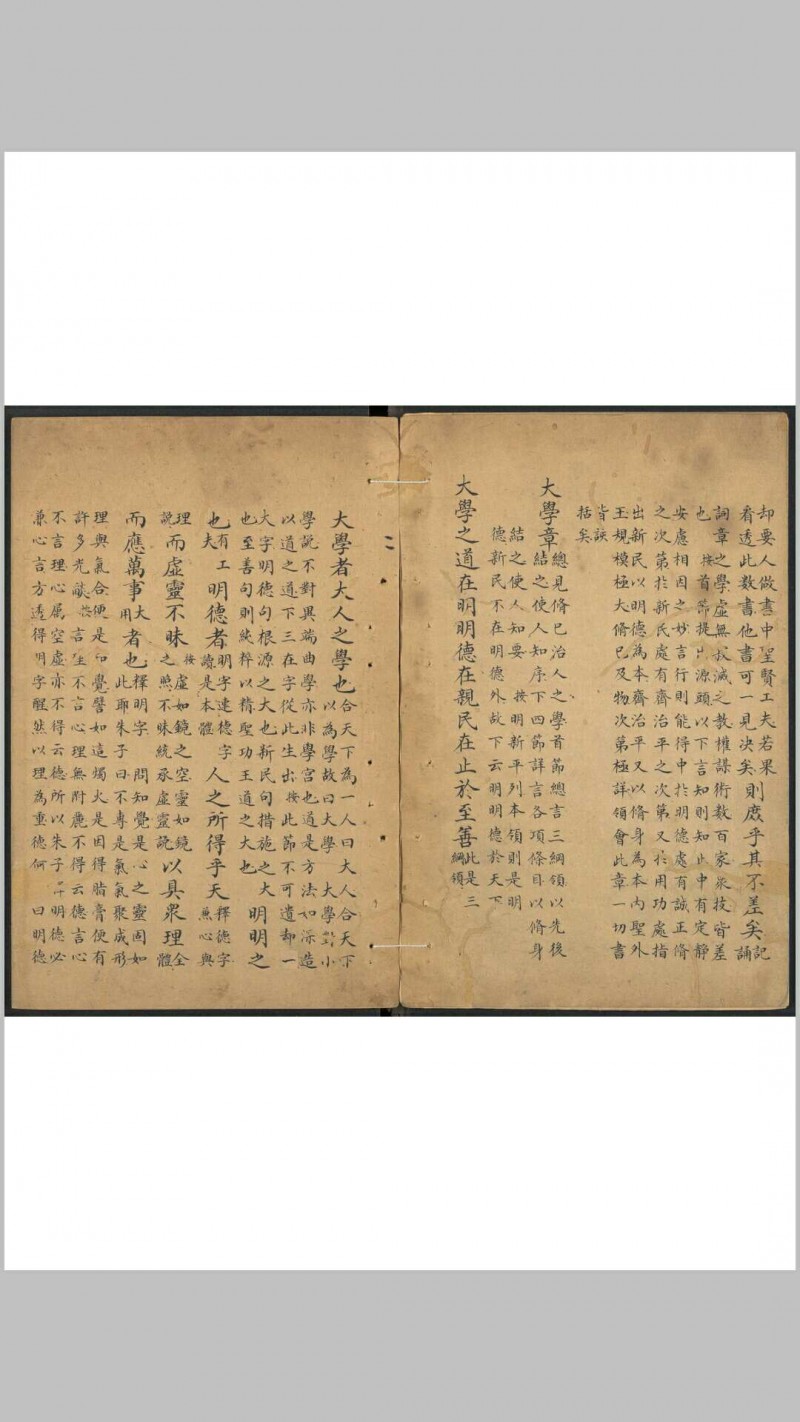 却要人做書中聖賢工夫若果則庻乎其不差矣記
看透此数書他書可一見决矣誦
詞章之學虚無寂滅之教權謀術数百家衆技皆差
也按首節提源頭以下言知則知止中有定静
安慮相因之妙言行則能得中扵明德處有誠正脩
之次第扵新民處有齊治平之次第又扵用功處指
出新民以明德為本齊治平又以脩身為本内聖外
王規模極大脩已及物次第極詳領會此章一切書
皆訣
括矣
大學章總見脩已治人之學首節總言三綱領以先後
結之使人知序下四節詳言各項條目以脩身
結之使人知要按明新平列本領則是明
德新民不在明德外故下云明明德於天下
大學之道在明明德在親民在止於至善此是三
綱領
大學者大人之學也合天下為一人曰大人合天下
以為學故曰大學大學對小
學說不對異端曲學亦非學宫也道是方法如深造
以道之道下三在字從此生出按此節不可遺却一
大字明德句根源之大也新民句措施之大明明之
也至善句則純粹以精聖功王道之大也
也有工夫明德者明字連德字讀是本體人之所得乎天釋德字
兼心與
理而虚靈不昧按虚如鏡之空靈如鏡
之照不昧統承虚靈說以具衆理全
體
說
而應萬事大用者也釋明字問知覺是心之靈固如
此耶朱子曰不專是氣氣聚成形
理與氣合便是知覺譬如這燭火是因得脂膏便有
許多光燄按言性不言心理無附麗不得云德言心
不言理心属空虚亦不得云德所以朱子言明德必
兼心言方透得明字醒然以理為重德何曰明德